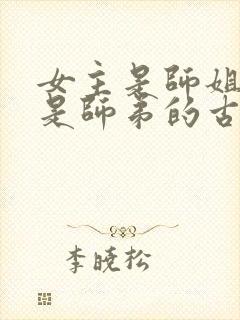 女主是師姐
是師弟的古
李曉松